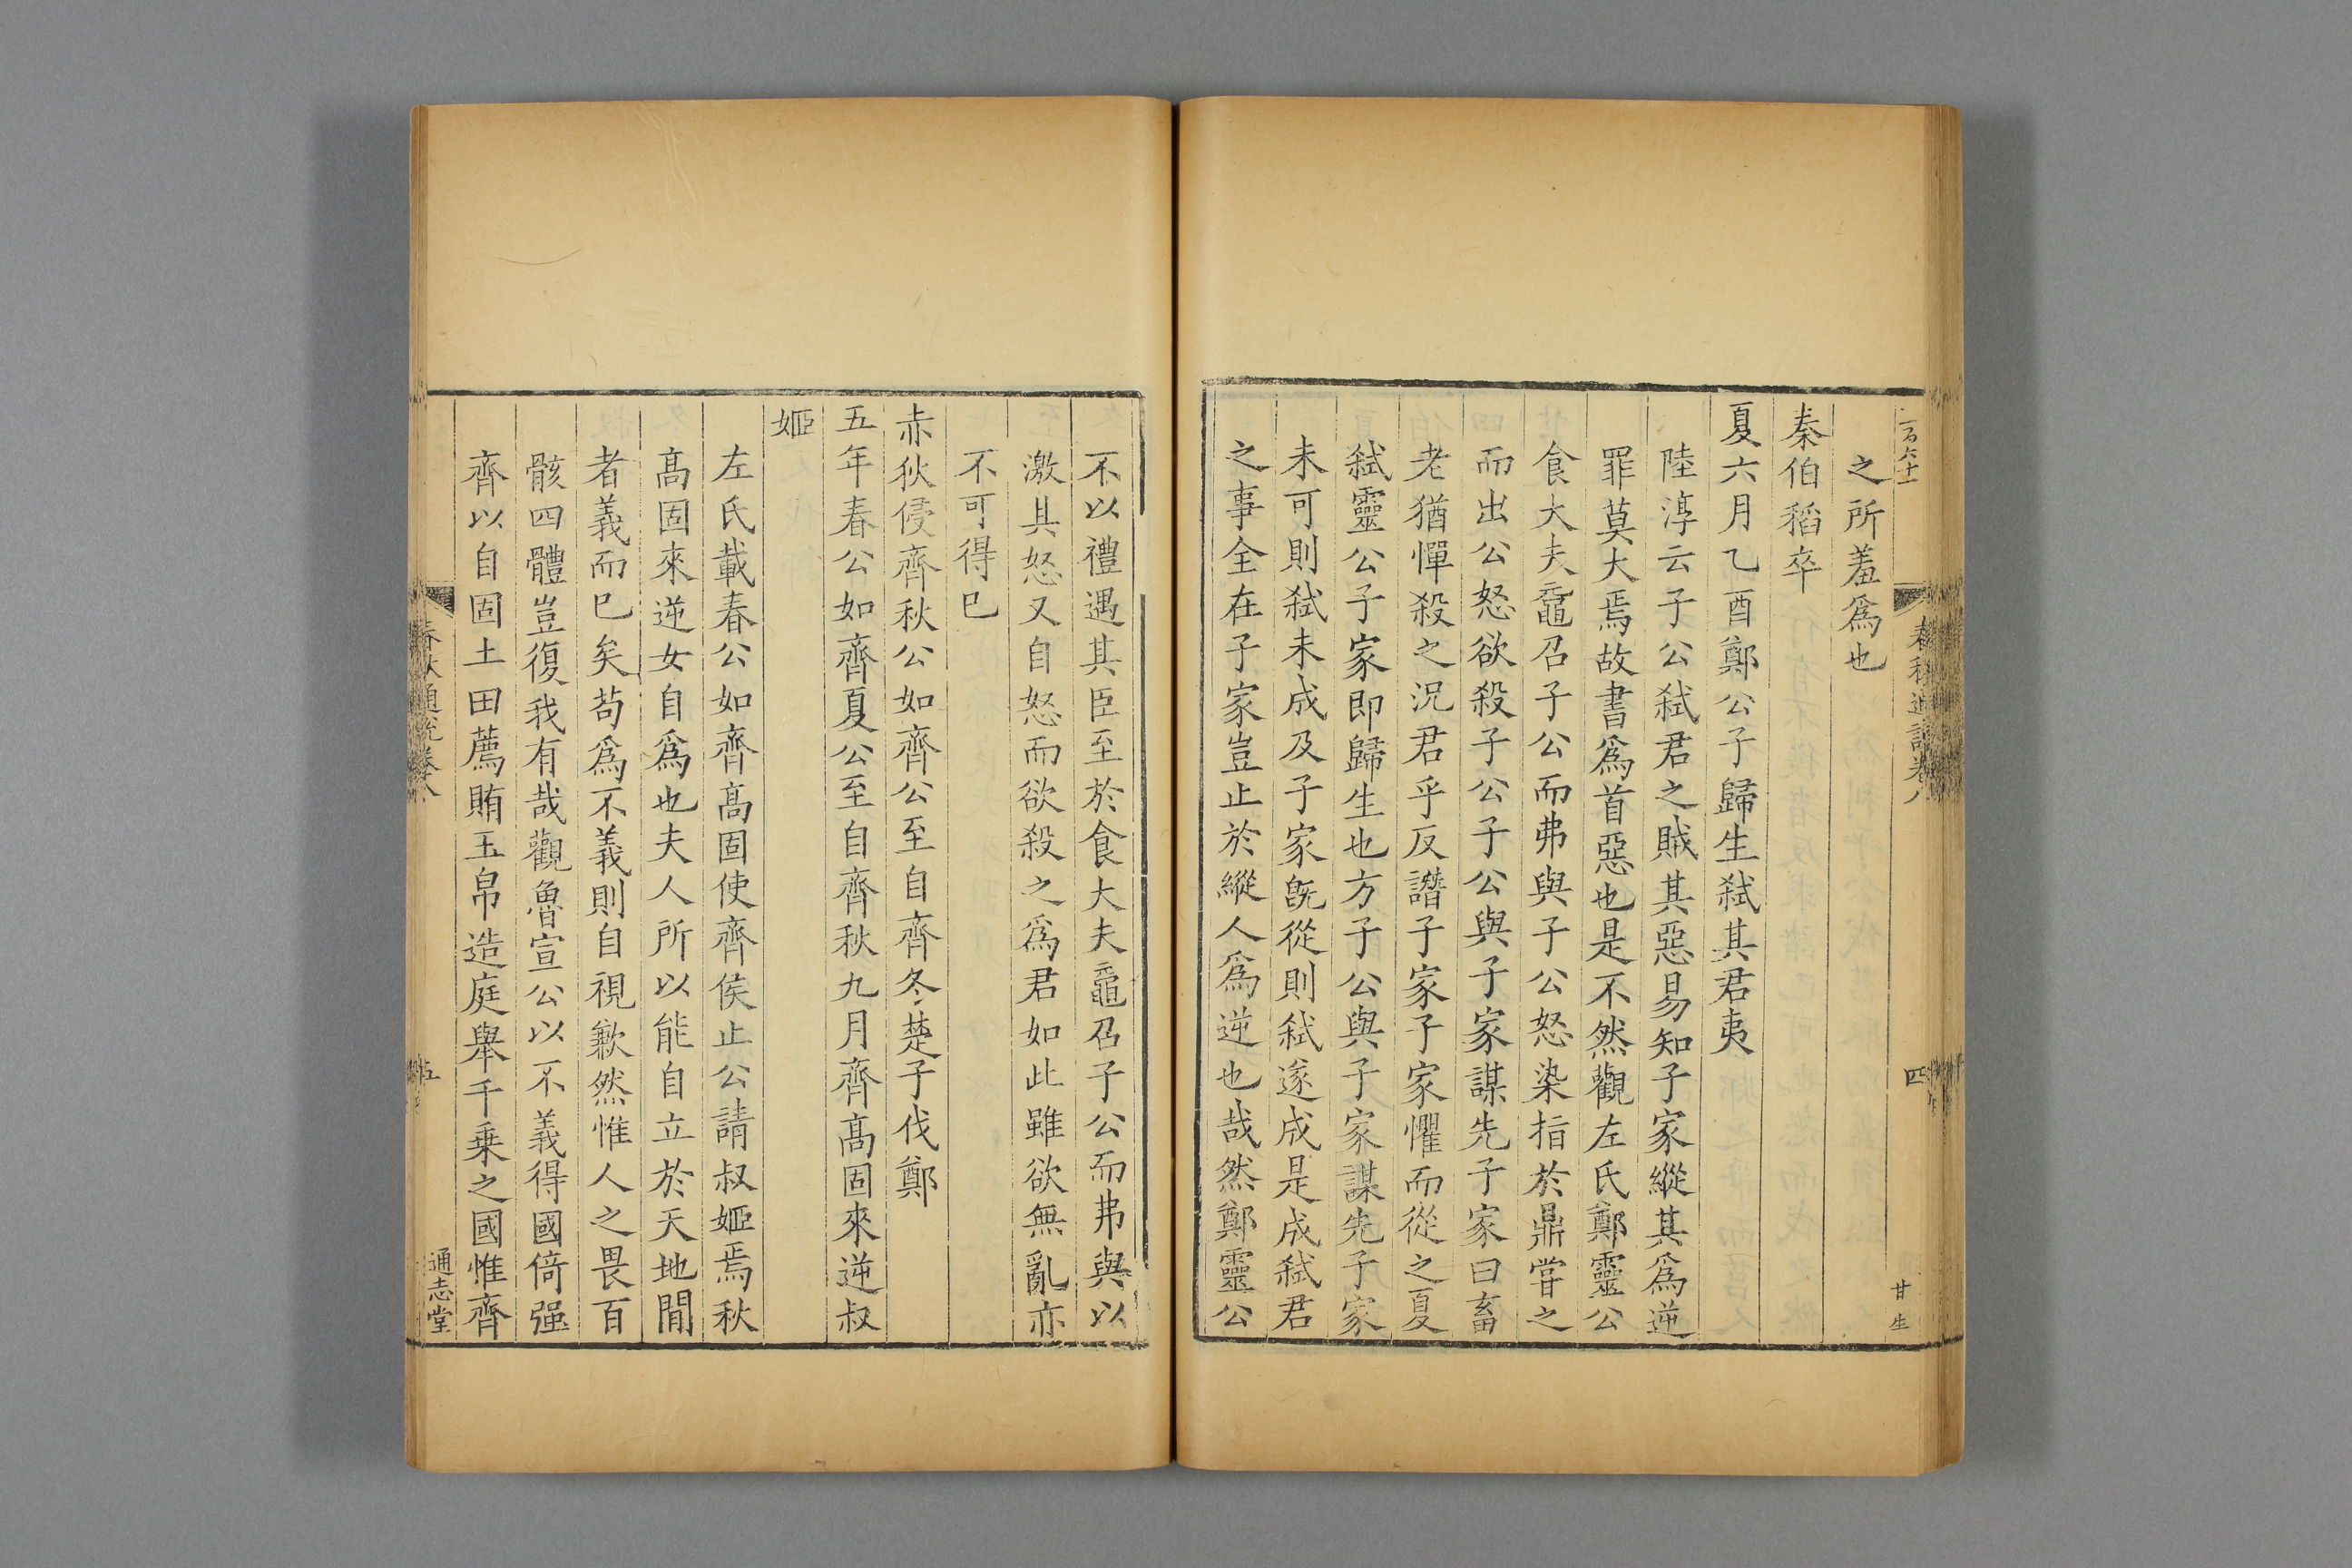 一百六十一
春秋通說卷八
四
甘生
之所羞爲也
秦伯稻卒
夏六月乙酉鄭公子歸生弒其君夷
陸淳云子公弒君之賊其惡易知子家縱其爲逆
罪莫大焉故書爲首惡也是不然觀左氏鄭靈公
食大夫黿召子公而弗與子公怒染指於鼎嘗之
而出公怒欲殺子公子公與子家謀先子家曰畜
老猶憚殺之況君乎反譖子家子家懼而從之夏
弒靈公子家即歸生也方子公與子家謀先子家
未可則弒未成及子家旣從則弒遂成是成弒君
之事全在子家豈止於縱人爲逆也哉然鄭靈公
不以禮遇其臣至於食大夫黿召子公而弗與以
激其怒又自怒而欲殺之爲君如此雖欲無亂亦
不可得巳
赤狄侵齊秋公如齊公至自齊冬楚子伐鄭
五年春公如齊夏公至自齊秋九月齊高固來逆叔
姬
左氏載春公如齊高固使齊侯止公請叔姬焉秋
高固來逆女自爲也夫人所以能自立於天地閒
者義而巳矣苟爲不義則自視歉然惟人之畏百
骸四體豈復我有哉觀魯宣公以不義得國倚强
齊以自固土田薦賄玉帛造庭舉千乗之國惟齊
春秋通說卷八
五
通志堂